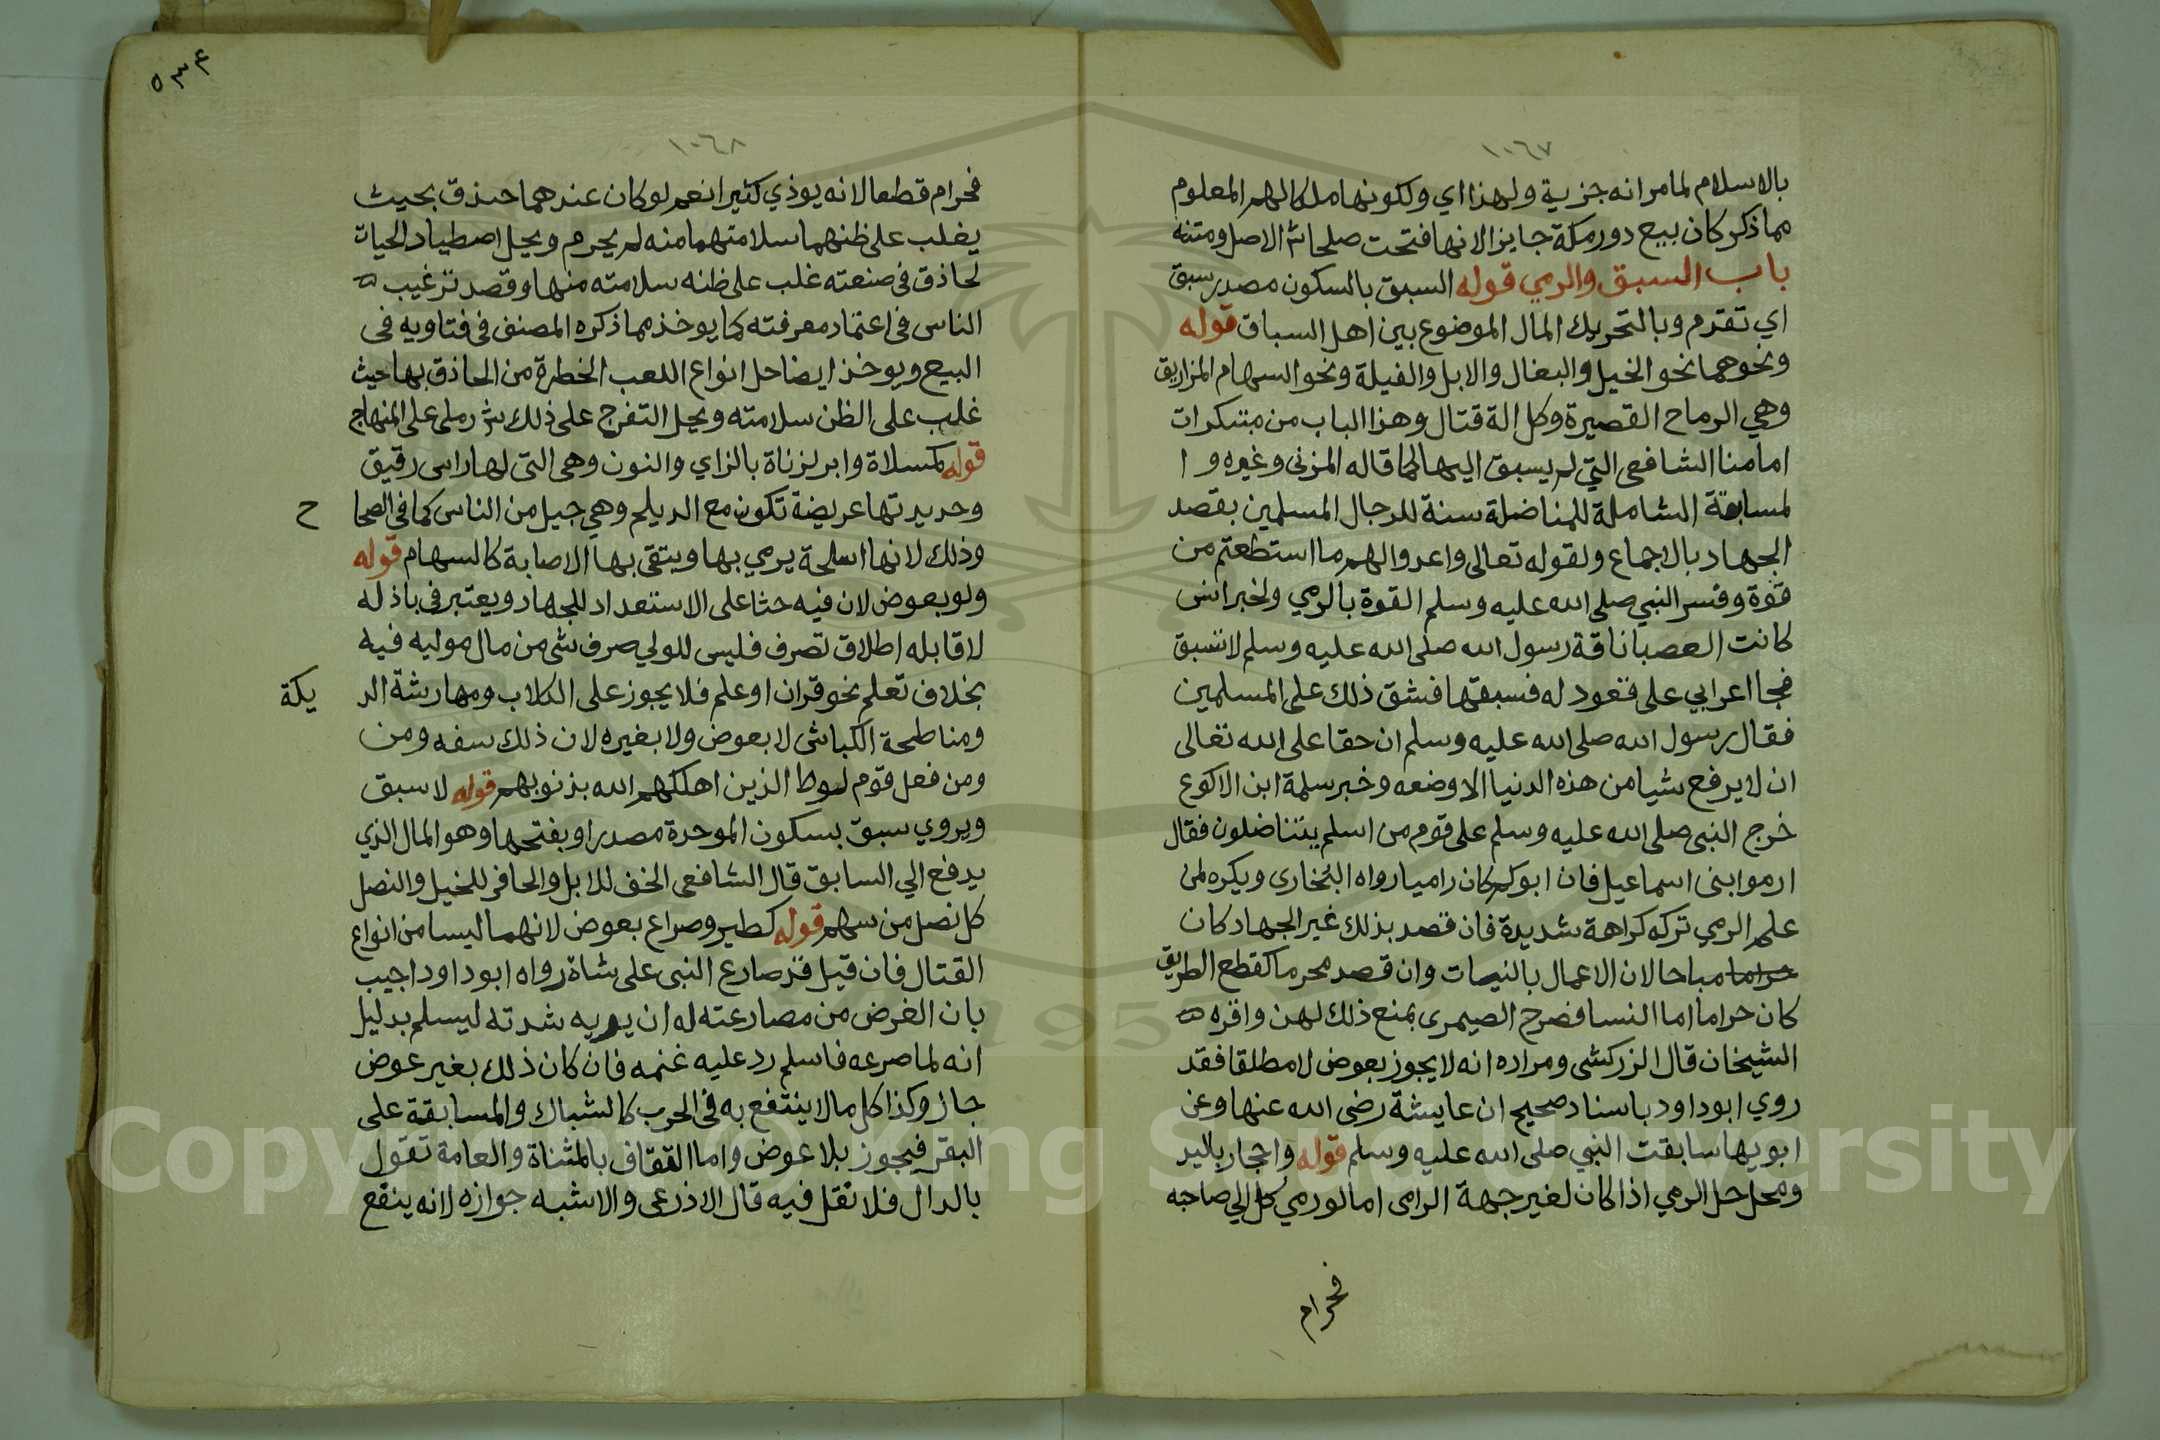 ١٠٦٧
بالاسلام لما مر انه جزية ولهذا اي ولكونها ملكا لهم المعلوم
مما ذكر كان بيع دور مكة جايز الانها فتحت صلحا ش الاصل ومتنه
باب السبق والرمي قوله السبق بالسكون مصدر سبق
اي تقدم وبالتحريك المال الموضوع بين اهل السباق قوله
ونحوهما نحو الخيل والبغال والابل والفيلة ونحو السهام المزاريق
وهي الرماح القصيرة وكل الة قتال وهذا الباب من مبتكرات
امامنا الشافعي التي لم يسبق اليها كما قاله المزني وغيره و ا
لمسابقة الشاملة للمناضلة سنة للرجال المسلمين بقصد
الجهاد بالاجماع ولقوله تعالى واعدوا لهم ما استطعتم من
قوة وفسر النبي صلى الله عليه وسلم القوة بالرمي ولخبر انس
كانت العصبا ناقة رسول الله صلى الله عليه وسلم لا تسبق
فجا اعرابي على قعود له فسبقها فشق ذلك على المسلمين
فقال رسول الله صلى الله عليه وسلم ان حقا على الله تعالى
ان لا يرفع شيا من هذه الدنيا الا وضعه وخبر سلمة ابن الاكوع
خرج النبي صلى الله عليه وسلم على قوم من اسلم يتناضلون فقال
ارموا بني اسماعيل فان ابوكم كان راميا رواه البخاري ويكره لمن
علم الرمي تركه كراهة شديدة فان قصد بذلك غير الجهاد كان
حراما مباحا لان الاعمال بالنيات وان قصد محرما كقطع الطريق
كان حراما اما النسا فصرح الصيمري بمنع ذلك لهن واقره
الشيخان قال الزركشي ومراده انه لا يجوز بعوض لا مطلقا فقد
روي ابو داود باسناد صحيح ان عايشة رضي الله عنها وعن
ابويها سابقت النبي صلى الله عليه وسلم قوله واحجار باليد
ومحل حل الرمي اذا كان لغير جهة الرامي اما لو رمي كل الي صاحبه
فحرام
٥٣٤
١٠٦٨
فحرام قطعا لانه يوذي كثيرا نعم لو كان عندهما حذق بحيث
يغلب على ظنهما سلامتهما منه لم يحرم ويحل اصطياد الحيات
لحاذق في صنعته غلب على ظنه سلامته منها وقصد ترغيب
الناس في اعتماد معرفته كما يوخذ مما ذكره المصنف في فتاويه في
البيع ويوخذ ايضا حل انواع اللعب الخطرة من الحاذق بها حيث
غلب على الظن سلامته ويحل التفرج على ذلك ش رملي على المنهاج
قوله كمسلاة وابر لزناة بالزاي والنون وهي التي لها راس رقيق
وحديدتها عريضة تكون مع الديلم وهي جيل من الناس كما في الصحا ح
وذلك لانها اسلحة يرمي بها ويتقي بها الاصابة كالسهام قوله
ولو بعوض لان فيه حثا على الاستعداد للجهاد ويعتبر في باذله
لا قابله اطلاق تصرف فليس للولي صرف شي من مال موليه فيه
بخلاف تعلم نحو قران او علم فلا يجوز على الكلاب ومهارشة الد يكة
ومناطحة الكباش لا بعوض ولا بغيره لان ذلك سفه ومن
ومن فعل قوم لوط الذين اهلكهم الله بذنوبهم قوله لا سبق
ويروي سبق بسكون الموحدة مصدرا وبفتحها وهو المال الذي
يدفع الي السابق قال الشافعي الخف للابل والحافر للخيل والنصل
كل نصل من سهم قوله كطير وصراع بعوض لانهما ليسا من انواع
القتال فان قيل قد صارع النبي على شاة رواه ابو داود اجيب
بان الغرض من مصارعته له ان يريه شدته ليسلم بدليل
انه لما صرعه فاسلم رد عليه غنمه فان كان ذلك بغير عوض
جاز وكذا كل ما لا ينتفع به في الحرب كالشباك والمسابقة على
البقر فيجوز بلا عوض واما القفاف بالمثناة والعامة تقول
بالدال فلا نقل فيه قال الاذرعي والاشبه جوازه لانه ينفع